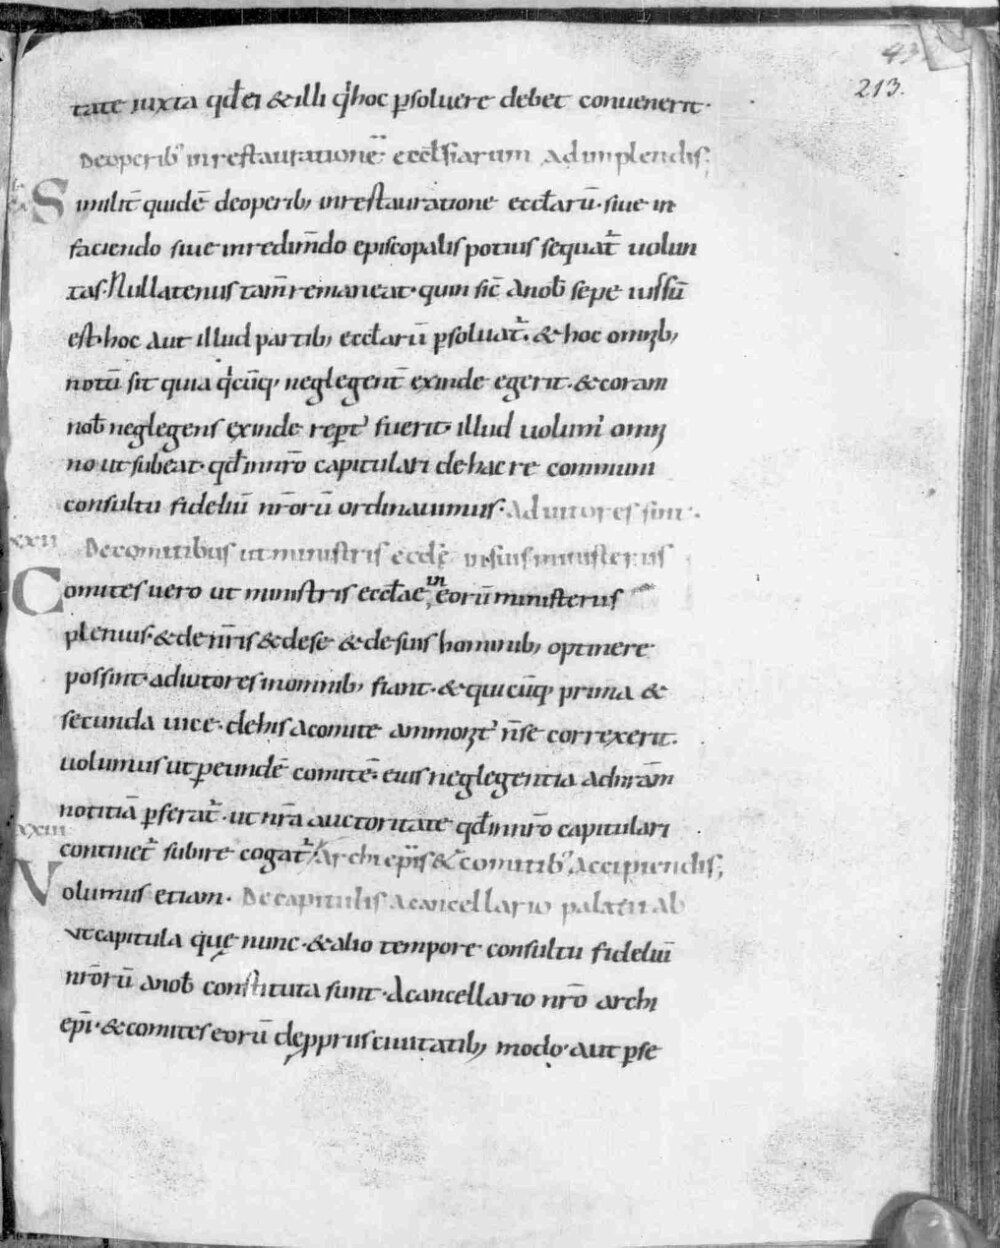 43
213.
tate iuxta qđ ei & illi q̍ hoc p̱soluere debet conuenerit·
De operib; in restauratione ecclesiarum adimplendis;
Similit̄ quidē de operib; in restauratione eccłarū· siue in
faciendo siue in redimēdo episcopalis potius sequat̄ uolun
tas· Nullatenus tam̄ remaneat· quin sic̄ a nob̄ sepe iussū
est· hoc aut illud partib; eccłarū p̱soluat̄· & hoc omīb;
notū sit quia q̍cūq; neglegent̄ exinde egerit· & coram
nob̄ neglegens exinde rep̱t' fuerit· illud uolum' omī
no ut subeat· qđ in nr̄o capitulari de hac re communi
consultu fideliū nr̄orū ordinauimus· Adiutores sint·
XXII De comitibus ut ministris eccłę in suis ministeriis
Comites uero ut ministris eccłae in eorū ministeriis
plenius· & de nr̄is & de se & de suis hominib; optinere
possint· adiutores in omnib; fiant· & qui cūq; prima &
secunda uice· de his a comite ammonit' n̄ se correxerit·
uolumus ut p̱ eundē comitē· eius neglegentiā ad nr̄am
notitiā p̱ferat̄· ut nr̄a auctoritate qđ in nr̄o capitulari
XXIII
continet̄ subire cogat̄· Archiep̄is & comitib; accipiendis;
Volumus etiam· De capitulis a cancellario palatii ab
ut capitula quę nunc· & alio tempore consultu fideliū
nr̄orū a nob̄ constituta sunt· A cancellario nr̄o archi
ep̄i· & comites eorū de p̱priis ciuitatib; modo· aut p̱ se